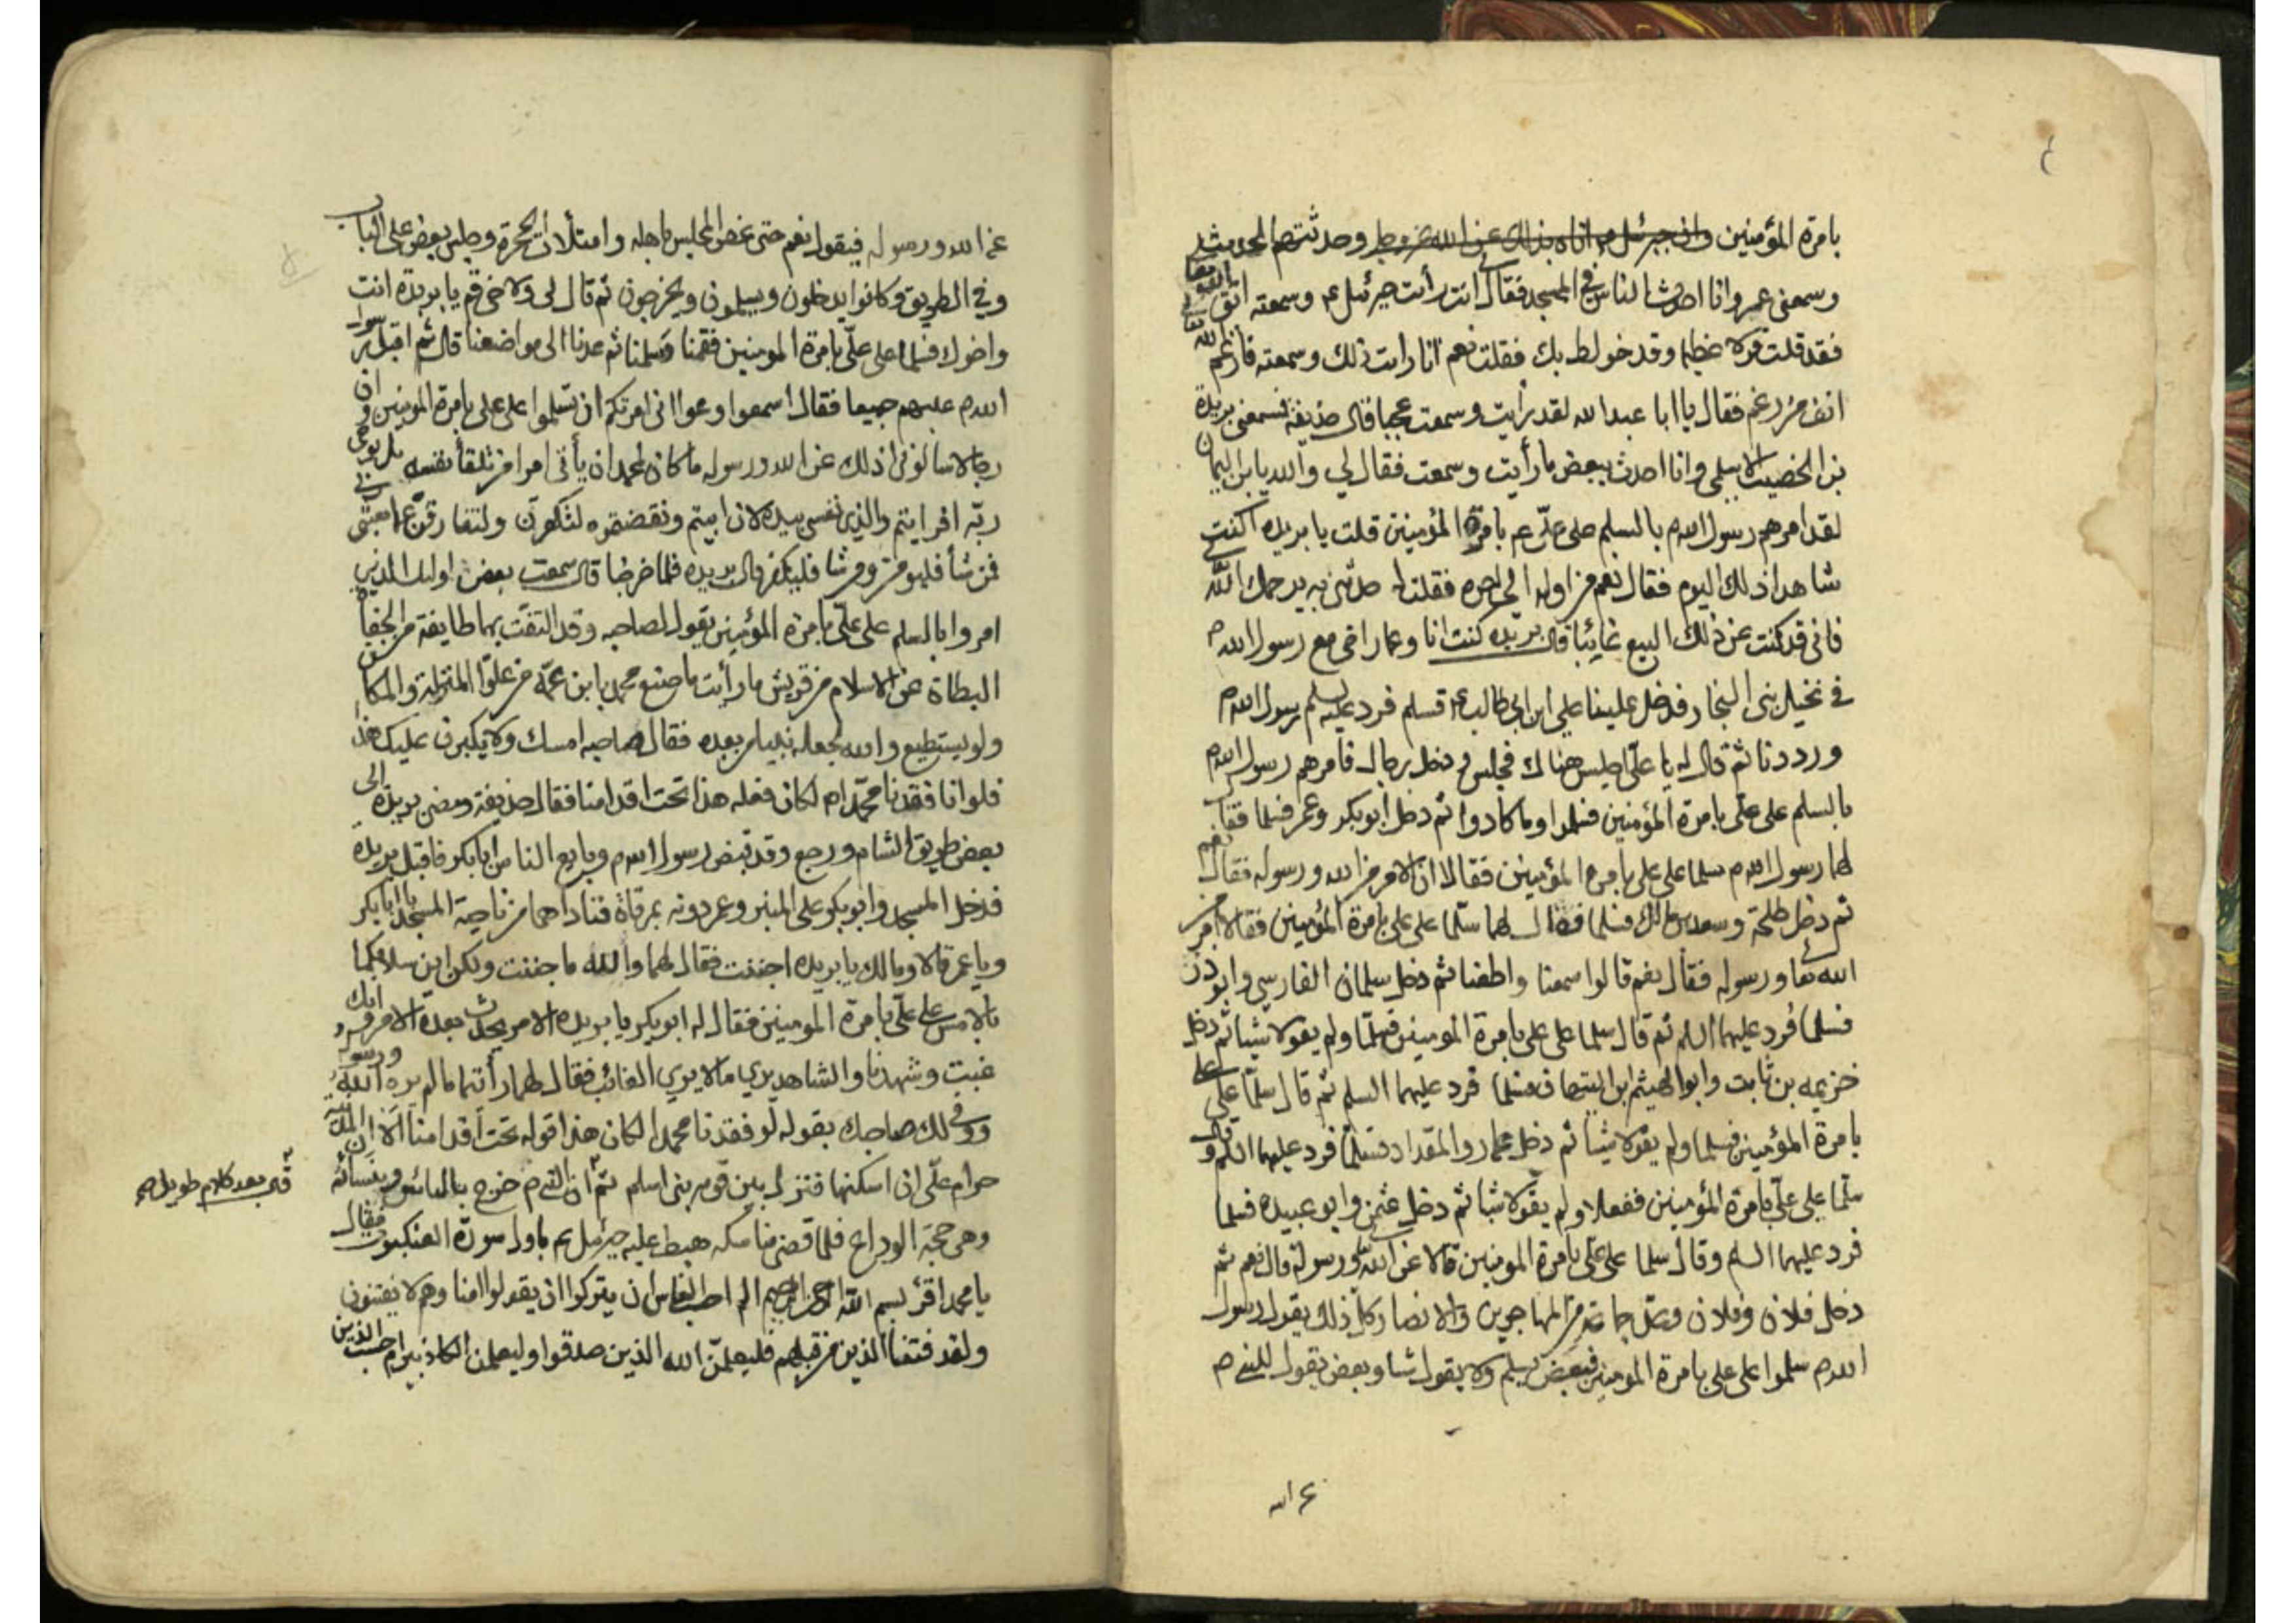 بامرة المؤمنين وان جبرئيل م اتاه بذلك عن الله عز وجل وحدثتهم الحديث
وسمعنى عمر وانا احدث الناس في المسجد فقال انت رأيت جبرئيل ع وسمعته اتق
فقد قلت قولا عظيما وقد خولط بك فقلت نعم انا رايت ذلك وسمعته فارغم الله
انف من رغم فقال يا ابا عبدالله لقد رأيت وسمعت عجبا قال حذيفة فسمعنى بريدة
بن الخصيب الاسلمى وانا احدث ببعض ما رأيت وسمعت فقال لي والله يا بن اليمان
لقد امرهم رسول الله م بالسلم على علي ع بامرة المؤمنين قلت يا بريده اكنت
شاهدا ذلك اليوم فقال نعم من اوله الى اخره فقلت له حدثني به يرحمك الله
فانى قد كنت عن ذلك اليوم غائبا قال بريده كنت انا وعمار اخى مع رسول الله م
في نخيل بنى النجار فدخل علينا على ابن ابى طالب ع فسلم فرد عليه رسول الله م
ورددنا ثم قال له يا علي اجلس هناك فجلس ودخل رجال فامرهم رسول الله م
بالسلم على على بامرة المؤمنين فسلموا وما كادوا ثم دخل ابوبكر وعمر فسلما فقال
لهما رسول الله م سلما على على بامرة المؤمنين فقالا ان الامر من الله ورسوله فقال نعم
ثم دخل طلحة وسعد بن مالك فسلما فقال لهما سلما على على بامرة المؤمنين فقالا امر من
الله تعا ورسوله فقال نعم قالوا سمعنا واطعنا ثم دخل سلمان الفارسي وابوذر
فسلما فرد عليهما السلم ثم قال سلما على على بامرة المومنين فسلما ولم يقولا شيئا ثم دخل
خزيمه بن ثابت وابو الهيثم ابن التيهان فسلما فرد عليهما السلم ثم قال سلما على علي
بامرة المؤمنين فسلما ولم يقولا شيئا ثم دخل عمار والمقداد فسلما فرد عليهما السلم وقال
سلما على علي بامرة المؤمنين ففعلا ولم يقولا شيئا ثم دخل عثمن وابو عبيده فسلما
فرد عليهما السلم وقال سلما على علي بامرة المومنين قالا عن الله ورسوله قال نعم ثم
دخل فلان وفلان وعد جماعة من المهاجرين والانصار كل ذلك يقول رسول
الله م سلموا على على بامرة المومنين فبعض يسلم ولا يقول شيئا وبعض يقول للنبى م
عن الله ورسوله فيقول نعم حتى غص المجلس باهله وامتلات الحجرة وجلس بعض على الباب
وفي الطريق وكانوا يدخلون ويسلمون ويخرجون ثم قال لى ولاخى قم يا بريدة انت
واخوك فسلما على علي بامرة المومنين فقمنا وسلمنا ثم عدنا الى مواضعنا قال ثم اقبل رسول
الله م عليهم جميعا فقال اسمعوا وعوا انى امرتكم ان تسلموا على على بامرة المومنين وان
رجالا سالونى اذلك عن الله ورسوله ما كان لمحمد ان يأتى امرا من تلقأ نفسه بل بوحى
ربه افرايتم والذى نفسى بيده لان ابيتم ونقضتموه لتكفرن ولتفارقن ما بعثنى
فمن شأ فليومن ومن شا فليكفر قال بريده فلما خرجنا قال سمعت بعض اولئك الذين
امروا بالسلم على علي بامرة المؤمنين يقول لصاحبه وقد التفت بهما طايفة من الجفاة
البطاة عن الاسلام من قريش ما رأيت ما صنع محمد بابن عمه من علو المنزلة والمكان
ولو يستطيع والله لجعله نبيا من بعده فقال صاحبه امسك ولا يكبرن عليك هذا
فلو انا فقدنا محمدا م لكان فعله هذا تحت اقدامنا فقال حذيفة ومضى بريدة الى
بعض طريق الشام ورجع وقد قبض رسول الله م وبايع الناس ابابكر فاقبل بريدة
فدخل المسجد وابوبكر على المنبر وعمر دونه بمرقاة فناداهما من ناحية المسجد يا ابابكر
ويا عمر قالا ومالك يا بريده اجننت فقال لهما والله ما جننت ولكن اين سلامكما
بالامس على علي بامرة المومنين فقال له ابوبكر يا بريده الامر يحدث بعده الامر وانك
غبت وشهدنا والشاهد يرى ما لا يرى الغائب فقال لهما رأيتما ما لم يره الله ورسوله
ووفى لك صاحبك بقوله لو فقدنا محمدا لكان هذا قوله تحت اقدامنا الا ان المدينة
حرام علي ان اسكنها فنزل بين قومه بنى اسلم ثم ان النبى م خرج بالناس وبنسائه
قال بعد كلام طويل
وهى حجة الوداع فلما قضى مناسكه هبط عليه جبرئيل ع باول سورة العنكبوت فقال
يا محمد اقرأ بسم الله الرحمن الرحيم الم احسب الناس ان يتركوا ان يقولوا امنا وهم لا يفتنون
ولقد فتنا الذين من قبلهم فليعلمن الله الذين صدقوا وليعلمن الكاذبين ام حسب الذين